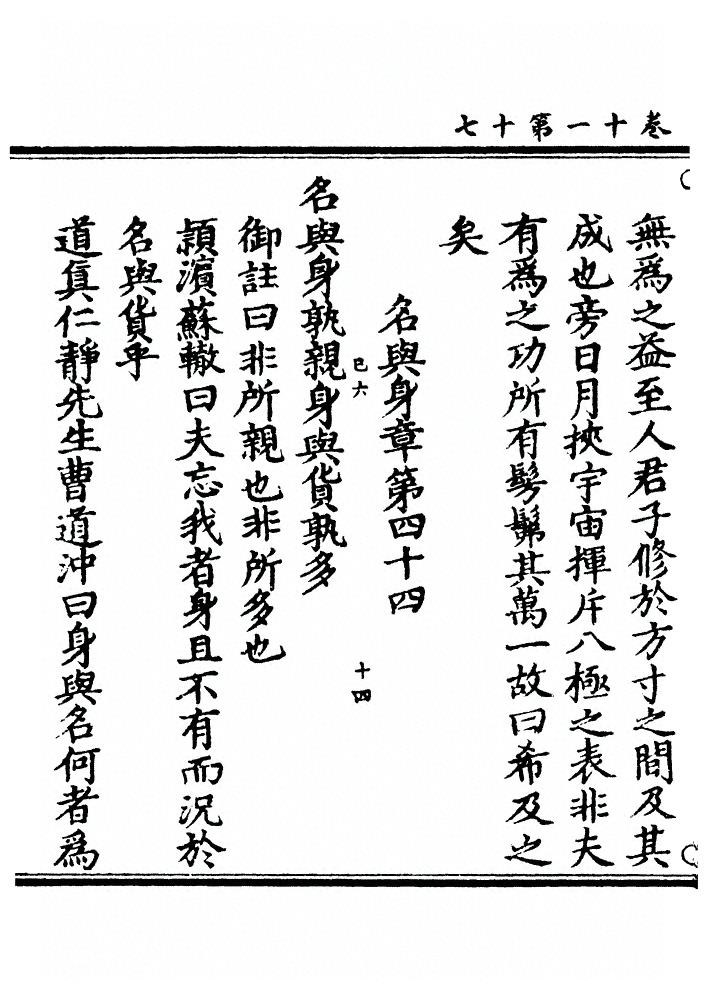 卷十一第十七
無爲之益至人君子修於方寸之間及其
成也旁日月挾宇宙揮斥八極之表非夫
有爲之功所有髣髴其萬一故曰希及之
矣
名與身章第四十四
己六
十四
名與身孰親身與貨孰多
御註曰非所親也非所多也
頴濵蘇轍曰夫忘我者身且不有而況於
名與貨乎
道眞仁靜先生曹道沖曰身與名何者爲